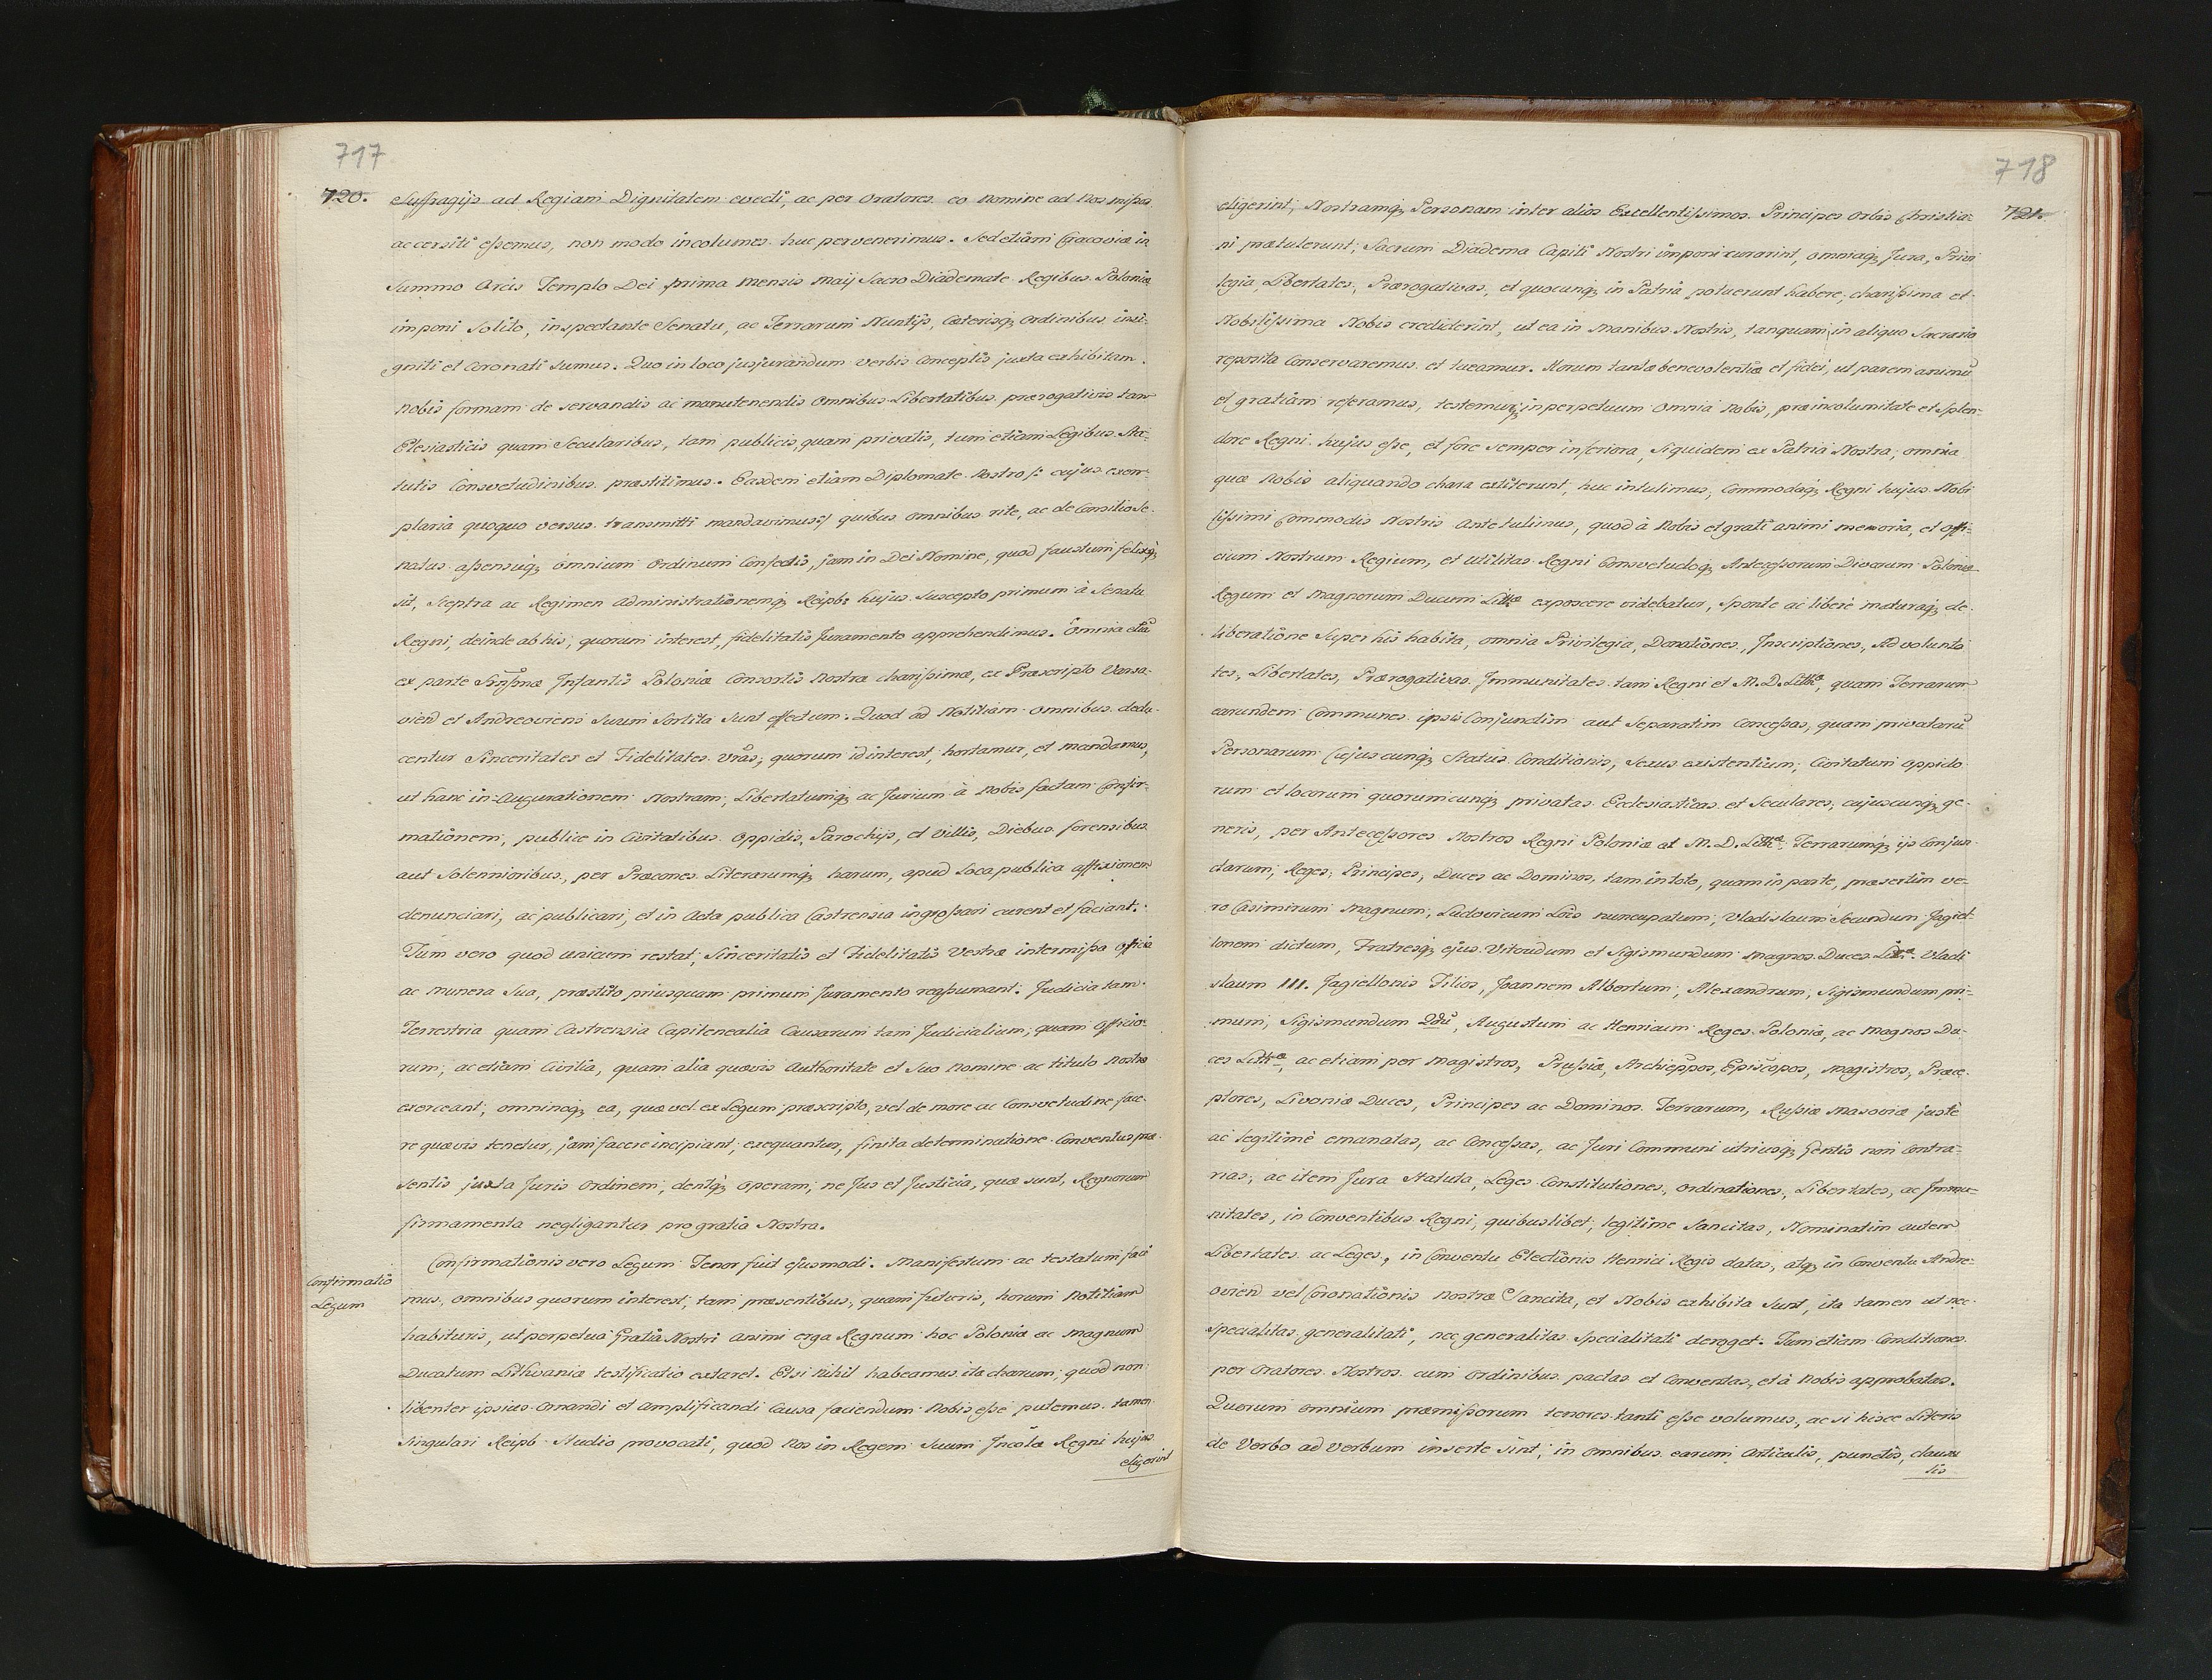 717
720. Suffragijs ad Regiam Dignitatem evecti, ac per Oratores eo Nomine ad Nos mißos
accersiti eßemus, non modo incolumes huc pervenerimus. Sed etiam Cracoviæ in
Summo Arcis Templo Dei prima mensis Maij Sacro Diademate Regibus Poloniæ
imponi Solito, inspectante Senatu, ac Terrarum Nuntijs, Cæterisq; Ordinibus insi-
gniti et Coronati sumus. Quo in loco jusjurandum verbis Conceptis juxta exhibitam
Nobis formam de servandis ac manutenendis Omnibus Libertatibus prærogativis tam
Eclesiasticis quam Secularibus, tam publicis, quam privatis, tum etiam Legibus Sta-
tutis Consvetudinibus præstitimus. Easdem etiam Diplomate Nostro /: cujus exem-
plaria quoquo versus transmitti mandavimus :/ quibus omnibus rite, ac de Consilio Se-
natus aßensuq; omnium Ordinum Confectis, jam in Dei Nomine, quod faustum felixq;
sit, Sceptra ac Regimen Administrationemq; Reipb: hujus Suscepto primum à Senatu
Regni, deinde ab his, quorum interest, fidelitatis Juramento apprehendimus. Omnia etiã
ex parte Srñßmæ Infantis Poloniæ Consortis Nostræ charißimæ, ex Præscripto Varsa-
vien̄ et Andreoviens Suum Sortita Sunt effectum. Quod ad Notitiam Omnibus dedu-
centur Sinceritates et Fidelitates Vrãs, quorum id interest, hortamur, et mandamus,
ut hanc in-Augurationem Nostram, Libertatumq; ac Jurium à Nobis factam Confir-
mationem, publice in Civitatibus Oppidis, Parochijs, et Villis, Diebus forensibus
aut Solennioribus, per Præcones Literarumq; harum, apud Loca publica affixionem
denunciari, ac publicari, et in Acta publica Castrensia ingroßari curent et faciant.
Tum vero quod unicum restat, Sinceritatis et Fidelitatis Vestræ intermißa officia
ac munera Sua, præstito priusquam primum Juramento reaßumant. Judicia tam
Terrestria quam Castrensia Capitenealia Causarum tam Judicialium, quam Officio-
rum, ac etiam Civilia, quam alia quævis Authoritate et Suo Nomine ac titulo Nostro
exerceant, omninoq; ea, quæ vel ex Legum præscripto, vel de more ac Consvetudine face-
re quævis tenetur, jam facere incipiant, exequantur, finita determinatione Conventus præ-
sentis juxta Juris Ordinem, dentq; operam, ne Jus et Justicia, quæ sunt, Regnorum
firmamenta negligantur pro gratia Nostra.
Confirmatio Legum
Confirmationis vero Legum Tenor fuit ejusmodi. Manifestum ac testatum faci-
mus, omnibus quorum interest, tam præsentibus, quam futuris, horum Notitiam
habituris, ut perpetua Gratia Nostri animi erga Regnum hoc Poloniæ ac magnum
Ducatum Lithvaniæ testificatio extaret. Etsi Nihil habeamus ita charum, quod non
libenter ipsius Ornandi et Amplificandi Causa faciendum Nobis eße putemus tamen
Singulari Reipb Studio provocati, quod Nos in Regem Suum Incolæ Regni hujus
eligerint
718
eligerint, Nostramq; Personam inter alios Excellentißimos Principes Orbis Christia- 721.
ni prætulerunt, Sacrum Diadema Capiti Nostri imponi curarint, omniaq; Jura, Privi
legia, Libertates, Prærogativas, et quæcunq; in Patria potuerunt habere, charißima et
Nobilißima Nobis crediderint, ut ea in Manibus Nostris, tanquam in aliquo Sacrario
reposita Conservaremus et tueamur. Horum tantæ benevolentiæ et fidei, ut parem animũ
et gratiam referamus, testemurq; in perpetuum Omnia Nobis, præ incolumitate et splen-
dore Regni hujus eße, et fore semper inferiora, Siquidem ex Patria Nostra, omnia
quæ Nobis aliquando chara extiterunt, huc intulimus, Commodaq; Regni hujus Nobi
lißimi Commodis Nostris Ante tulimus, quod à Nobis et grati animi memoria, et offi-
cium Nostrum Regium, et Utilitas Regni Consvetudoq; Anteceßorum Divorum Poloniæ
Regum et Magnorum Ducum Littæ exposcere videbatur, Sponte ac libere maturaq; de-
liberatione Super his habita, omnia Privilegia, Donationes, Inscriptiones, Advolunta
tes, Libertates, Prærogativas, Immunitates tam Regni et M. D. Litthæ, quam Terrarum
earundem Communes ipsis Conjunctim aut Separatim Conceßas, quam privatarũ
Personarum Cujuscunq; Status Conditionis, Sexus existentium, Civitatum Oppido
rum et locorum quorumcunq; privatas Ecclesiasticas et Seculares, cujuscunq; ge-
neris, per Anteceßores Nostros Regni Poloniæ et M. D. Litthæ, Terrarumq; ijs Conjun-
ctarum, Reges, Principes, Duces ac Dominos, tam in toto, quam in parte, præsertim ve-
ro Casimirum Magnum, Ludovicum Lois nuncupatum, Vladislaum Secundum Jagiel-
lonem dictum, Fratresq; ejus Vitoudum et Sigismundum Magnos Duces Littæ Vladi
slaum III. Jagiellonis Filios, Joannem Albertum, Alexandrum, Sigismundum pri-
mum, Sigismundum 2dũ, Augustum ac Henricum Reges Poloniæ, ac Magnos Du-
ces Litthæ, ac etiam per Magistros, Prußiæ, Archieppos, Episcopos, Magistros, Præce-
ptores, Livoniæ Duces, Principes ac Dominos Terrarum, Rußiæ Masoviæ juste
ac legitime emanatas, ac Conceßas, ac Juri Communi utriusq; Gentis non Contra-
rias, ac item Jura Statuta, Leges Constitutiones, Ordinationes, Libertates, ac Immu-
nitates, in Conventibus Regni, quibuslibet, legitime Sancitas, Nominatim autem
Libertates ac Leges, in Conventu Electionis Henrici Regis datas, atq; in Conventu Andre-
ovien̄ vel Coronationis Nostræ Sancita, et Nobis exhibita Sunt, ita tamen ut nec
Specialitas generalitati, nec generalitas Specialitati deroget. Tum etiam Conditiones
per Oratores Nostros cum Ordinibus pactas et Conventas, et à Nobis approbatas.
Quorum omnium præmißorum tenores tanti eße volumus, ac si hisce Literis
de Verbo ad Verbum inserte sint, in Omnibus earum Articulis, punctis, clausu
lis